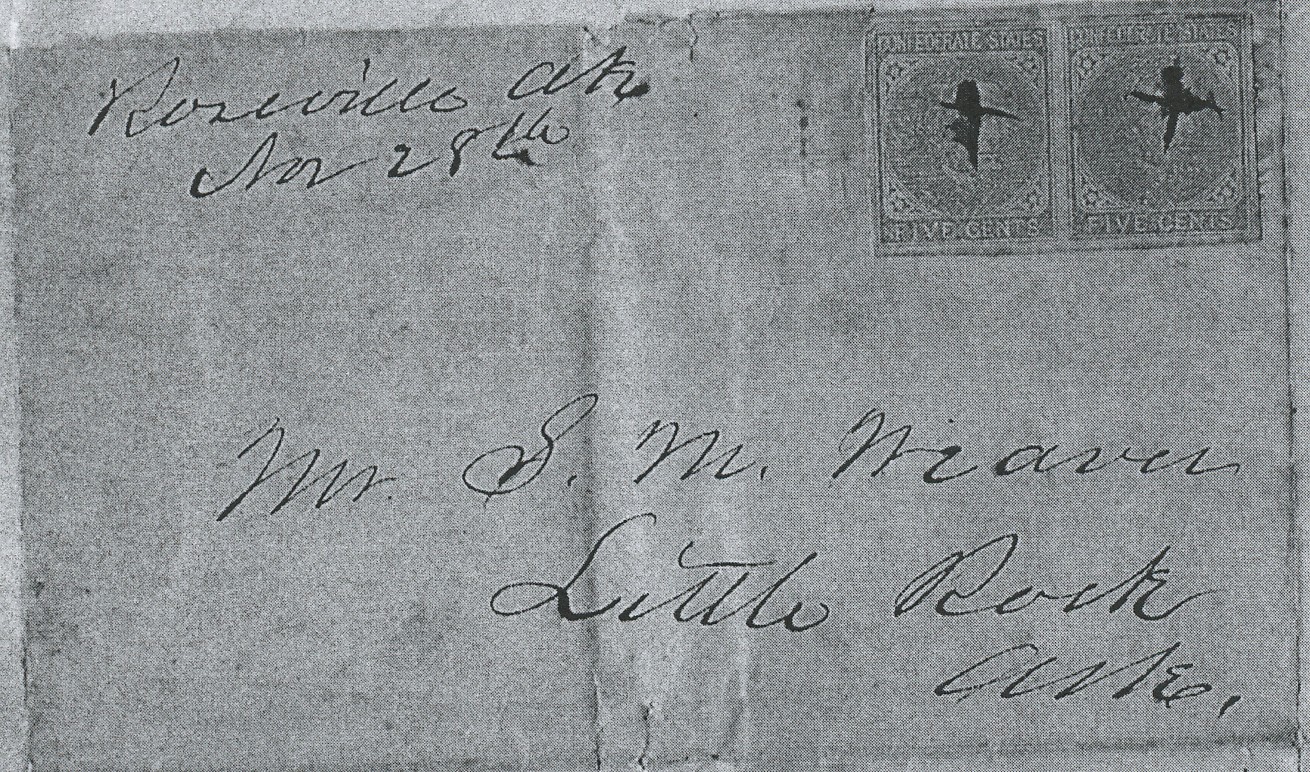 Roseville Ark
Nov 28th
CONFEDERATE STATES CONFEDERATE STATES
FIVE CENTS FIVE CENTS
Mr. S. M. Weaver
Little Rock
Ark.